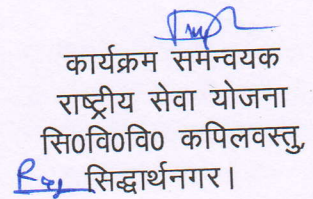 कार्यक्रम समन्वयक
राष्ट्रीय सेवा योजना
सि0वि0वि0 कपिलवस्तु,
सिद्धार्थनगर।